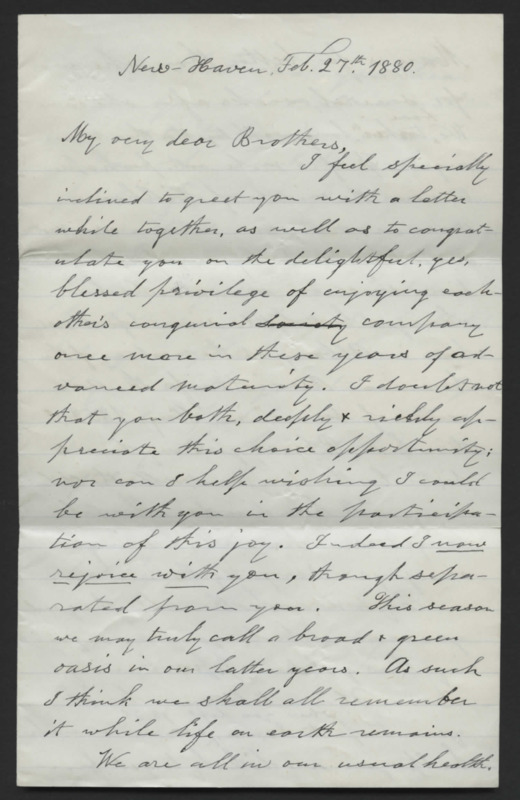 New-Haven, Feb. 27th. 1880.
My very dear Brothers,
I feel specially
inclined to greet you with a letter
while together, as well as to congrat-
ulate you on the delightful, yes,
blessed privilege of enjoying each-
other's congenial society company
once more in these years of ad-
vanced maturity. I doubt not
that you both, deeply & richly ap-
preciate this choice opportunity;
nor can I help wishing I could
be with you in the participa-
tion of this joy. Indeed I now
rejoice with you, though sepa-
rated from you. This season
we may truly call a broad & green
oasis in our latter years. As such
I think we shall all remember
it while life on earth remains.
We are all in our usual health.